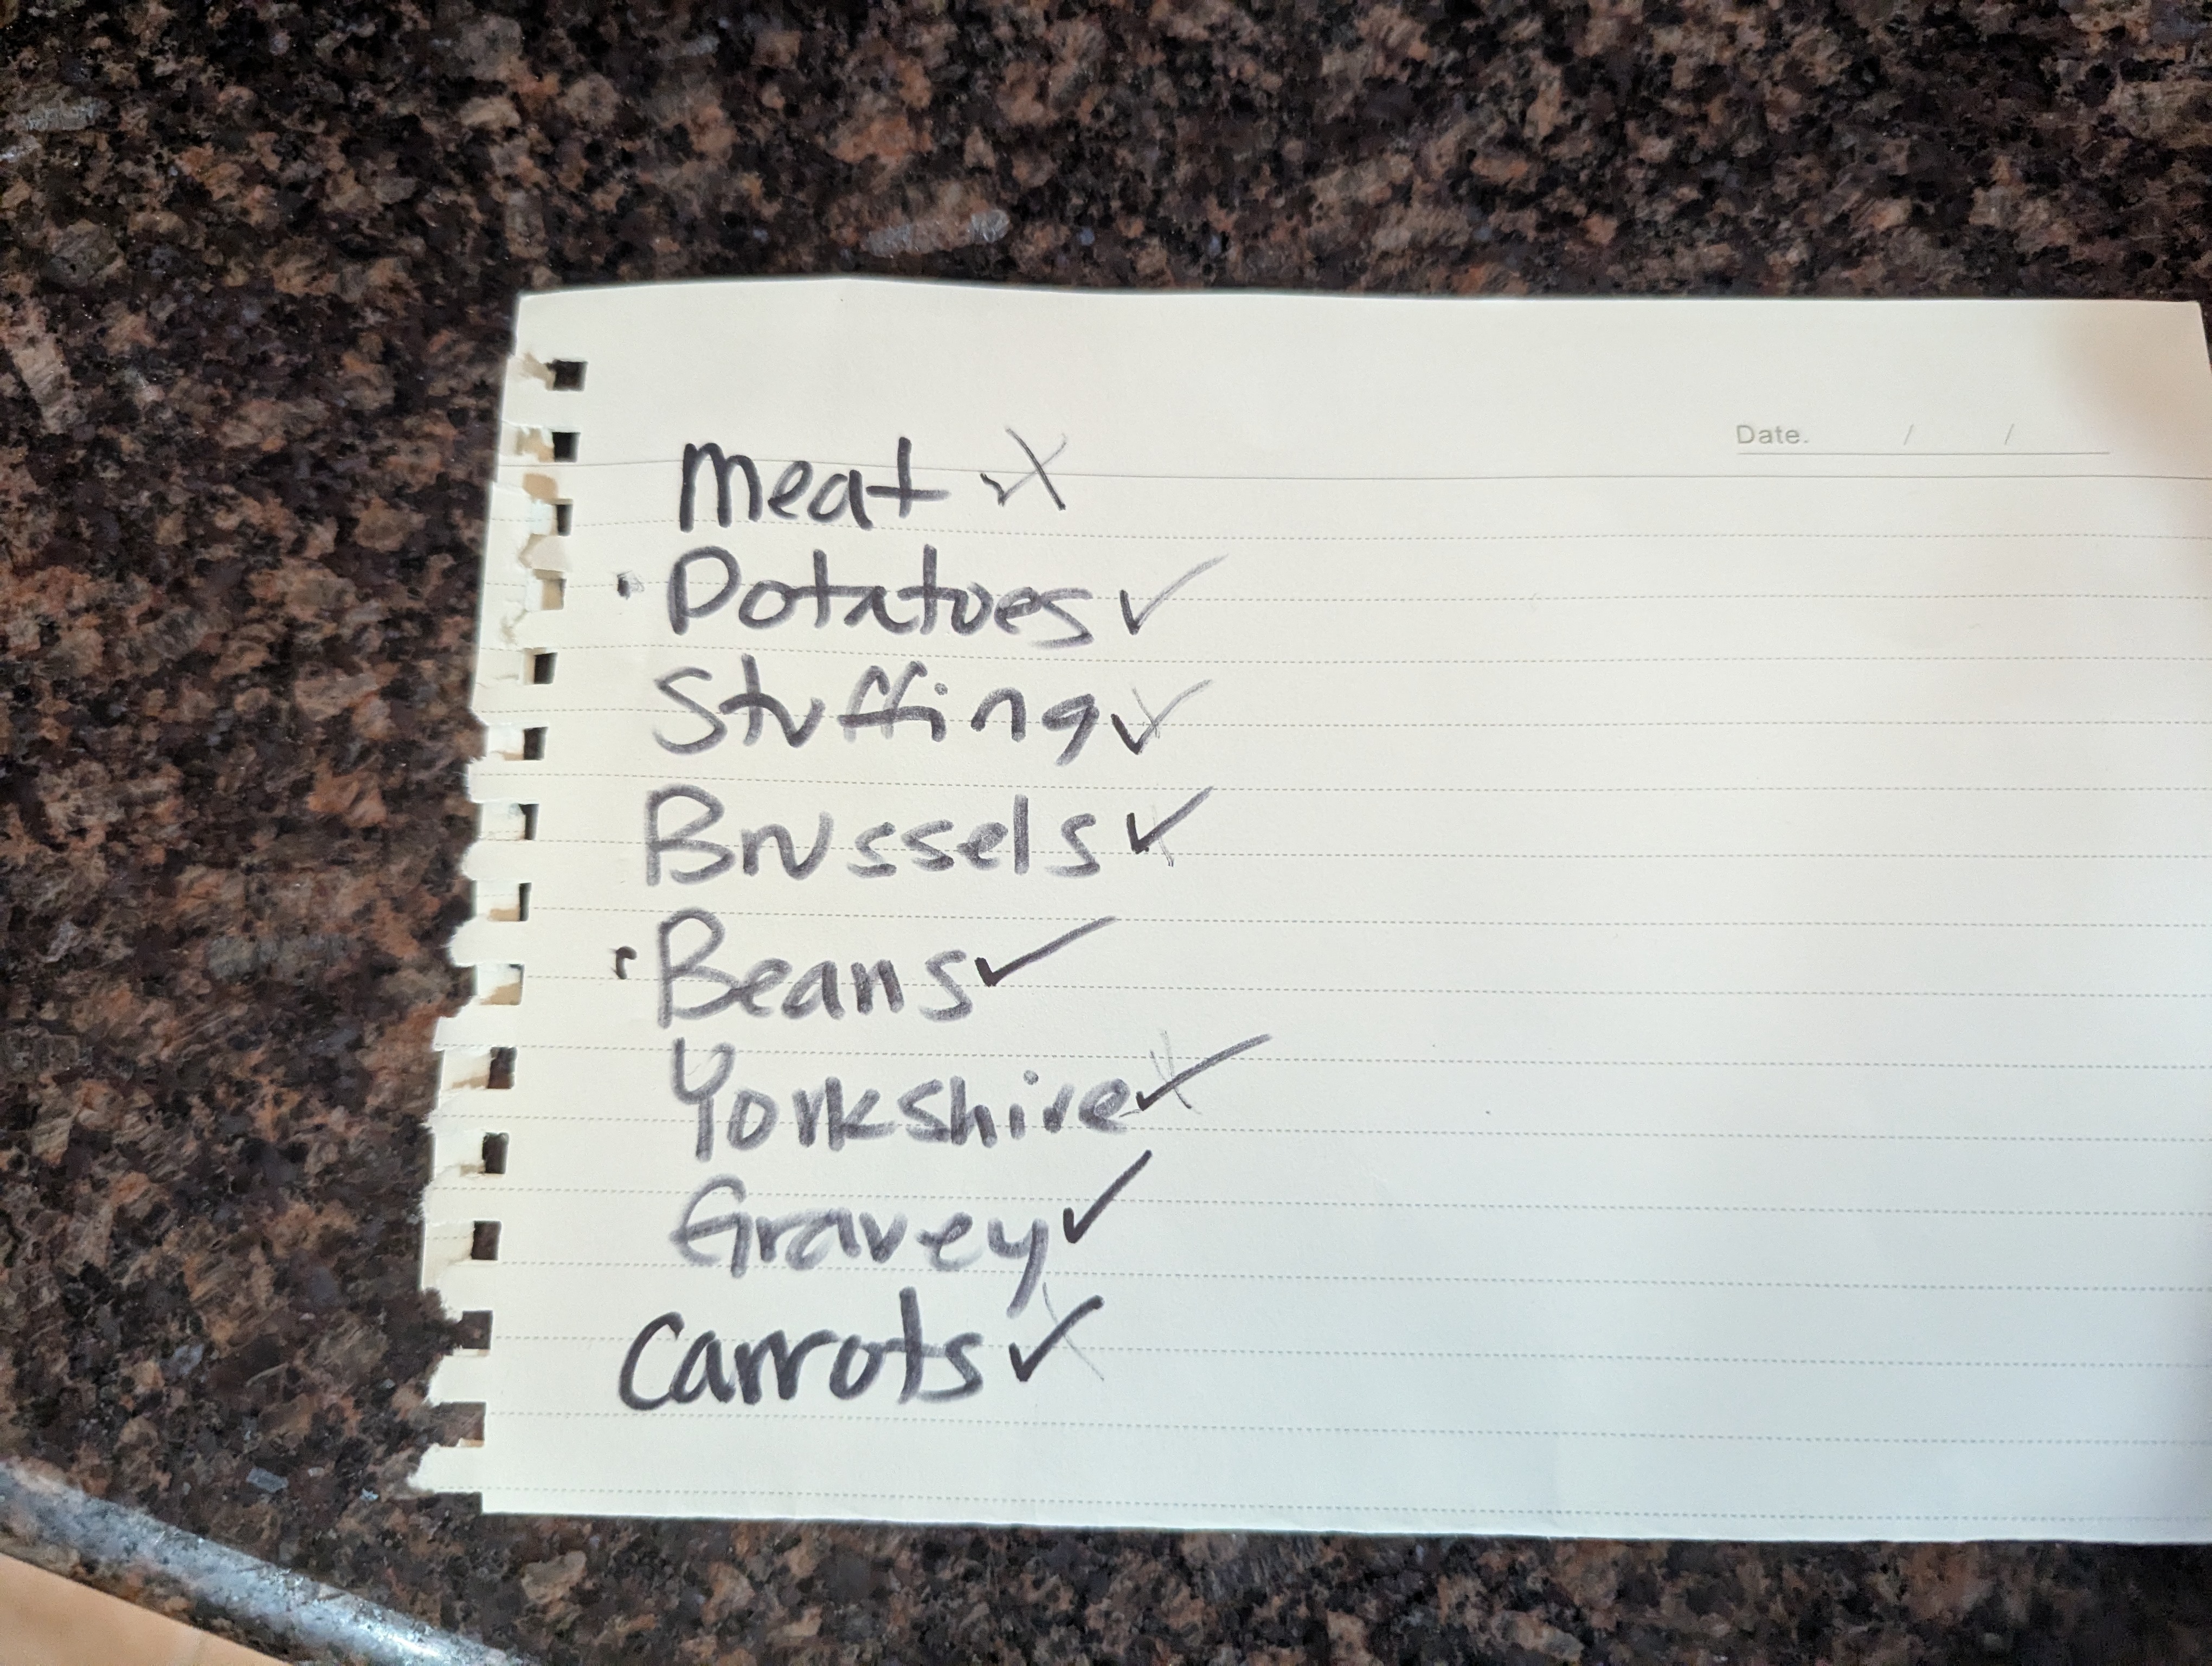 Date. / /
Meat X
Potatoes ✓
Stuffing ✓
Brussels ✓
Beans ✓
Yorkshire ✓
Gravey ✓
Carrots ✓